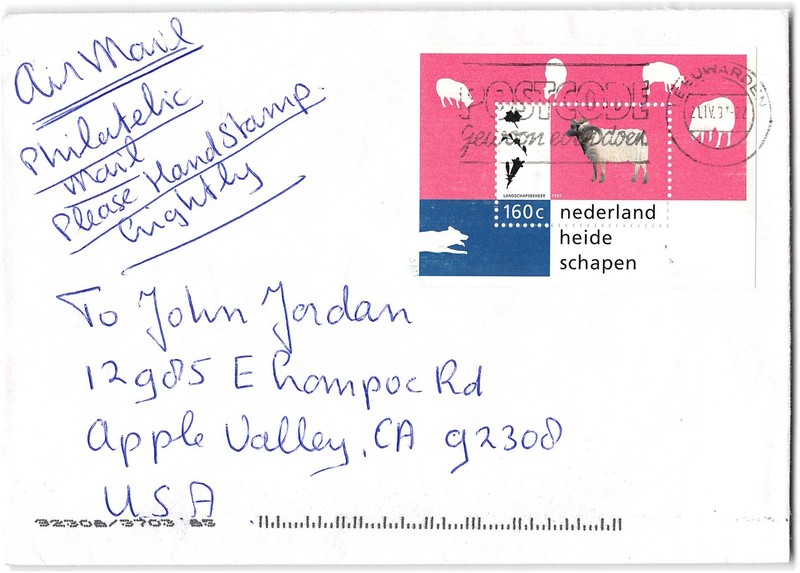 Air Mail
Philatelic
Mail
Please Hand Stamp
Lightly
POSTCODE
Gewoon even doen
LEEUWARDEN
LANDSCHAPSBEHEER 1997
160 c
nederland
heide
schapen
To John Jordan
12985 E Lompoc Rd
Apple Valley, CA 92308
USA
92308/3703 85